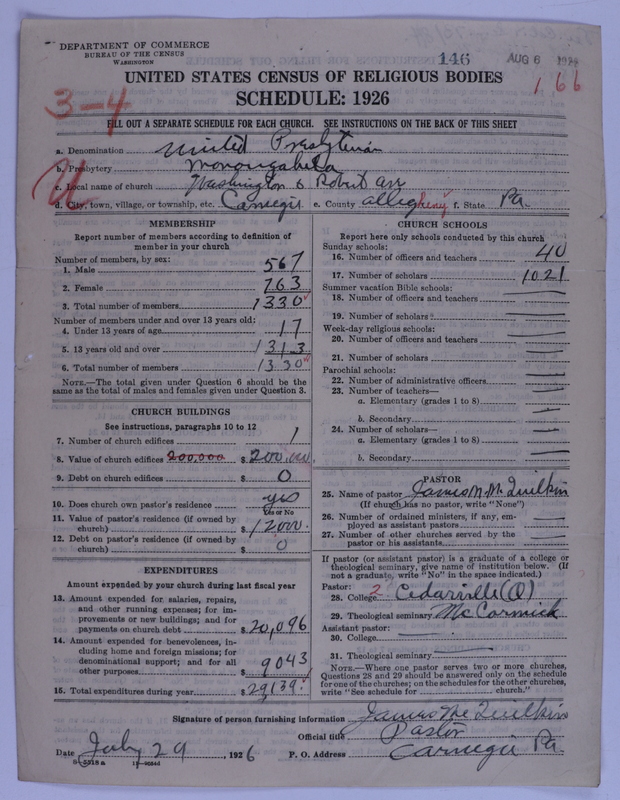 DEPARTMENT OF COMMERCE
BUREAU OF THE CENSUS
WASHINGTON
146
AUG 6 1926
UNITED STATES CENSUS OF RELIGIOUS BODIES
1 66
SCHEDULE: 1926
3-4
FILL OUT A SEPARATE SCHEDULE FOR EACH CHURCH. SEE INSTRUCTIONS ON THE BACK OF THIS SHEET
a. Denomination United Presbyterian
b. Presbytery Monongahela
U
c. Local name of church Washington & Robert arr
d. City, town, village, or township, etc. Carnegie e. County allegheny f. State Pa.
MEMBERSHIP
Report number of members according to definition of member in your church
Number of members, by sex:
1. Male 567
2. Female 763
3. Total number of members 1330
Number of members under and over 13 years old:
4. Under 13 years of age 17
5. 13 years old and over 1313
6. Total number of members 1330
NOTE.—The total given under Question 6 should be the
same as the total of males and females given under Question 3.
CHURCH BUILDINGS
See instructions, paragraphs 10 to 12
7. Number of church edifices 1
8. Value of church edifices 200,000 $ 200.000
9. Debt on church edifices $ 0
10. Does church own pastor's residence yes
Yes or No
11. Value of pastor's residence (if owned by
church) $ 12000.
12. Debt on pastor's residence (if owned by
church) $ 0
EXPENDITURES
Amount expended by your church during last fiscal year
13. Amount expended for salaries, repairs,
and other running expenses; for im-
provements or new buildings; and for
payments on church debt $ 20,096
14. Amount expended for benevolences, in-
cluding home and foreign missions; for
denominational support; and for all
other purposes $ 9043
15. Total expenditures during year $ 29,139.
CHURCH SCHOOLS
Report here only schools conducted by this church
Sunday schools:
16. Number of officers and teachers 40
17. Number of scholars 1021
Summer vacation Bible schools:
18. Number of officers and teachers —
19. Number of scholars —
Week-day religious schools:
20. Number of officers and teachers —
21. Number of scholars —
Parochial schools:
22. Number of administrative officers —
23. Number of teachers—
a. Elementary (grades 1 to 8) —
b. Secondary —
24. Number of scholars—
a. Elementary (grades 1 to 8) —
b. Secondary —
PASTOR
25. Name of pastor James M. McQuilkin
(If church has no pastor, write "None")
26. Number of ordained ministers, if any, em-
ployed as assistant pastors —
27. Number of other churches served by the
pastor or his assistants —
If pastor (or assistant pastor) is a graduate of a college or
theological seminary, give name of institution below. (If
not a graduate, write "No" in the space indicated.)
Pastor:
28. College 2 Cedarville (O)
29. Theological seminary McCormick
Assistant pastor:
30. College —
31. Theological seminary —
NOTE.—Where one pastor serves two or more churches,
Questions 28 and 29 should be answered only on the schedule
for one of the churches; on the schedules for the other churches,
write "See schedule for church."
Signature of person furnishing information James McQuilkin
Official title Pastor
Date July 29, 1926 P. O. Address Carnegie Pa.